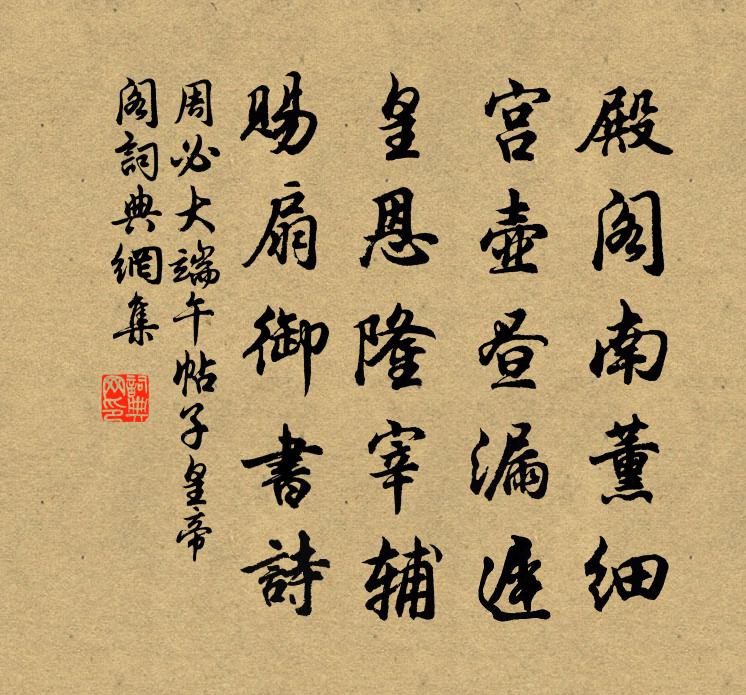 殿阁南薰细
宫壶昼漏遲
皇恩隆宰辅
赐扇御書詩
周必大端午帖子皇帝
阁詞典網集
詞典
网印